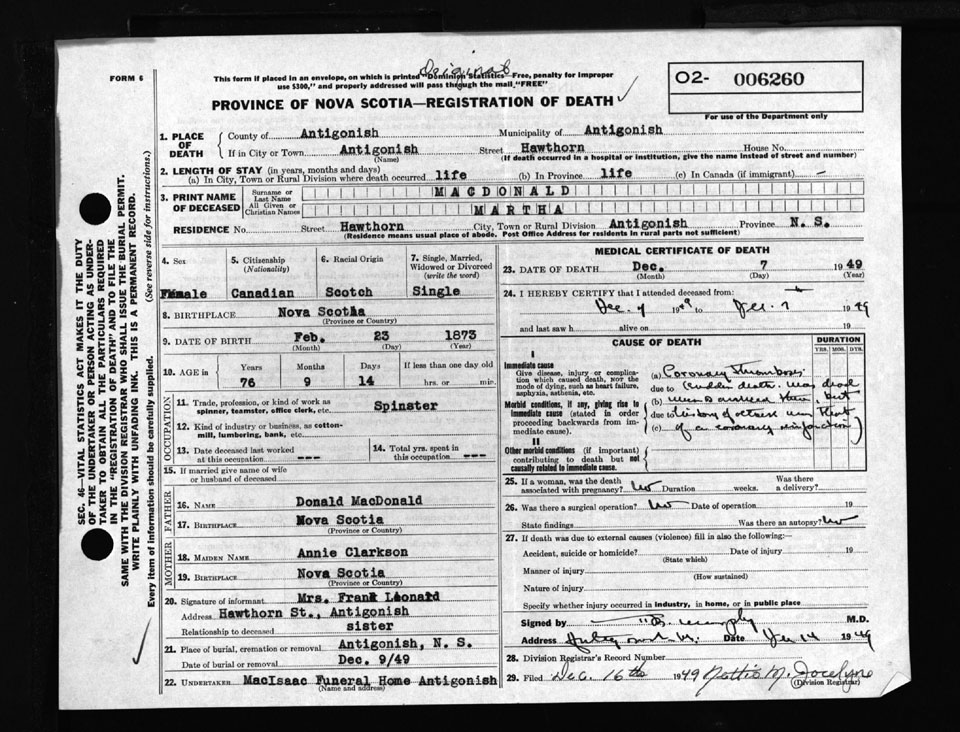 FORM 6
Original
This form if placed in an envelope, on which is printed "Dominion Statistics" Free, penalty for improper
use $300," and properly addressed will pass through the mail, "FREE"
O2- 006260
For use of the Department only
PROVINCE OF NOVA SCOTIA—REGISTRATION OF DEATH
SEC. 46—VITAL STATISTICS ACT MAKES IT THE DUTY
OF THE UNDERTAKER OR PERSON ACTING AS UNDER-
TAKER TO OBTAIN ALL THE PARTICULARS REQUIRED
IN THE "REGISTRATION OF DEATH" AND TO FILE THE
SAME WITH THE DIVISION REGISTRAR WHO SHALL ISSUE THE BURIAL PERMIT.
WRITE PLAINLY WITH UNFADING INK. THIS IS A PERMANENT RECORD.
Every item of information should be carefully supplied. (See reverse side for instructions.)
1. PLACE OF DEATH
County of Antigonish Municipality of Antigonish
If in City or Town Antigonish Street Hawthorn House No.
(Name) (If death occurred in a hospital or institution, give the name instead of street and number)
2. LENGTH OF STAY (in years, months and days)
(a) In City, Town or Rural Division where death occurred life (b) In Province life (c) In Canada (if immigrant) —
3. PRINT NAME OF DECEASED
Surname or Last Name MACDONALD
All Given or Christian Names MARTHA
RESIDENCE No. Street Hawthorn City, Town or Rural Division Antigonish Province N. S.
(Residence means usual place of abode. Post Office Address for residents in rural parts not sufficient)
4. Sex
Female
5. Citizenship
(Nationality)
Canadian
6. Racial Origin
Scotch
7. Single, Married,
Widowed or Divorced
(write the word)
Single
8. BIRTHPLACE Nova Scotia
(Province or Country)
9. DATE OF BIRTH Feb. 23 1873
(Month) (Day) (Year)
10. AGE in
Years Months Days If less than one day old
76 9 14 hrs. or min.
OCCUPATION
11. Trade, profession, or kind of work as
spinner, teamster, office clerk, etc. Spinster
12. Kind of industry or business, as cotton-
mill, lumbering, bank, etc.
13. Date deceased last worked
at this occupation ---
14. Total yrs. spent in
this occupation ---
15. If married give name of wife
or husband of deceased
FATHER
16. NAME Donald MacDonald
17. BIRTHPLACE Nova Scotia
(Province or Country)
MOTHER
18. MAIDEN NAME Annie Clarkson
19. BIRTHPLACE Nova Scotia
(Province or Country)
20. Signature of informant Mrs. Frank Leonard
Address Hawthorn St., Antigonish
Relationship to deceased sister
21. Place of burial, cremation or removal Antigonish, N. S.
Date of burial or removal Dec. 9/49
22. UNDERTAKER MacIsaac Funeral Home Antigonish
(Name and address)
MEDICAL CERTIFICATE OF DEATH
23. DATE OF DEATH Dec. 7 1949
(Month) (Day) (Year)
24. I HEREBY CERTIFY that I attended deceased from:
Dec. 7 1949 to Dec. 7 1949
and last saw h alive on 19
CAUSE OF DEATH
DURATION
YRS. MOS. DYS.
I
Immediate cause
Give disease, injury or complica-
tion which caused death, NOT the
mode of dying, such as heart failure,
asphyxia, asthenia, etc.
Morbid conditions, if any, giving rise to
immediate cause (stated in order
proceeding backwards from im-
mediate cause).
II
Other morbid conditions (if important)
contributing to death but not
causally related to immediate cause.
(a) Coronary Thrombosis
due to (Sudden death. Was dead
(b) when I arrived there, but
due to history of illness was that
(c) of a coronary
25. If a woman, was the death
associated with pregnancy? No Duration weeks. Was there
a delivery?
26. Was there a surgical operation? No Date of operation 19
State findings Was there an autopsy? No
27. If death was due to external causes (violence) fill in also the following:—
Accident, suicide or homicide? Date of injury 19
(State which)
Manner of injury
(How sustained)
Nature of injury
Specify whether injury occurred in industry, in home, or in public place
Signed by Murphy M.D.
Address Date 14 1949
28. Division Registrar's Record Number
29. Filed Dec. 16th 1949 Nettie M. Jocelyne
(Division Registrar)